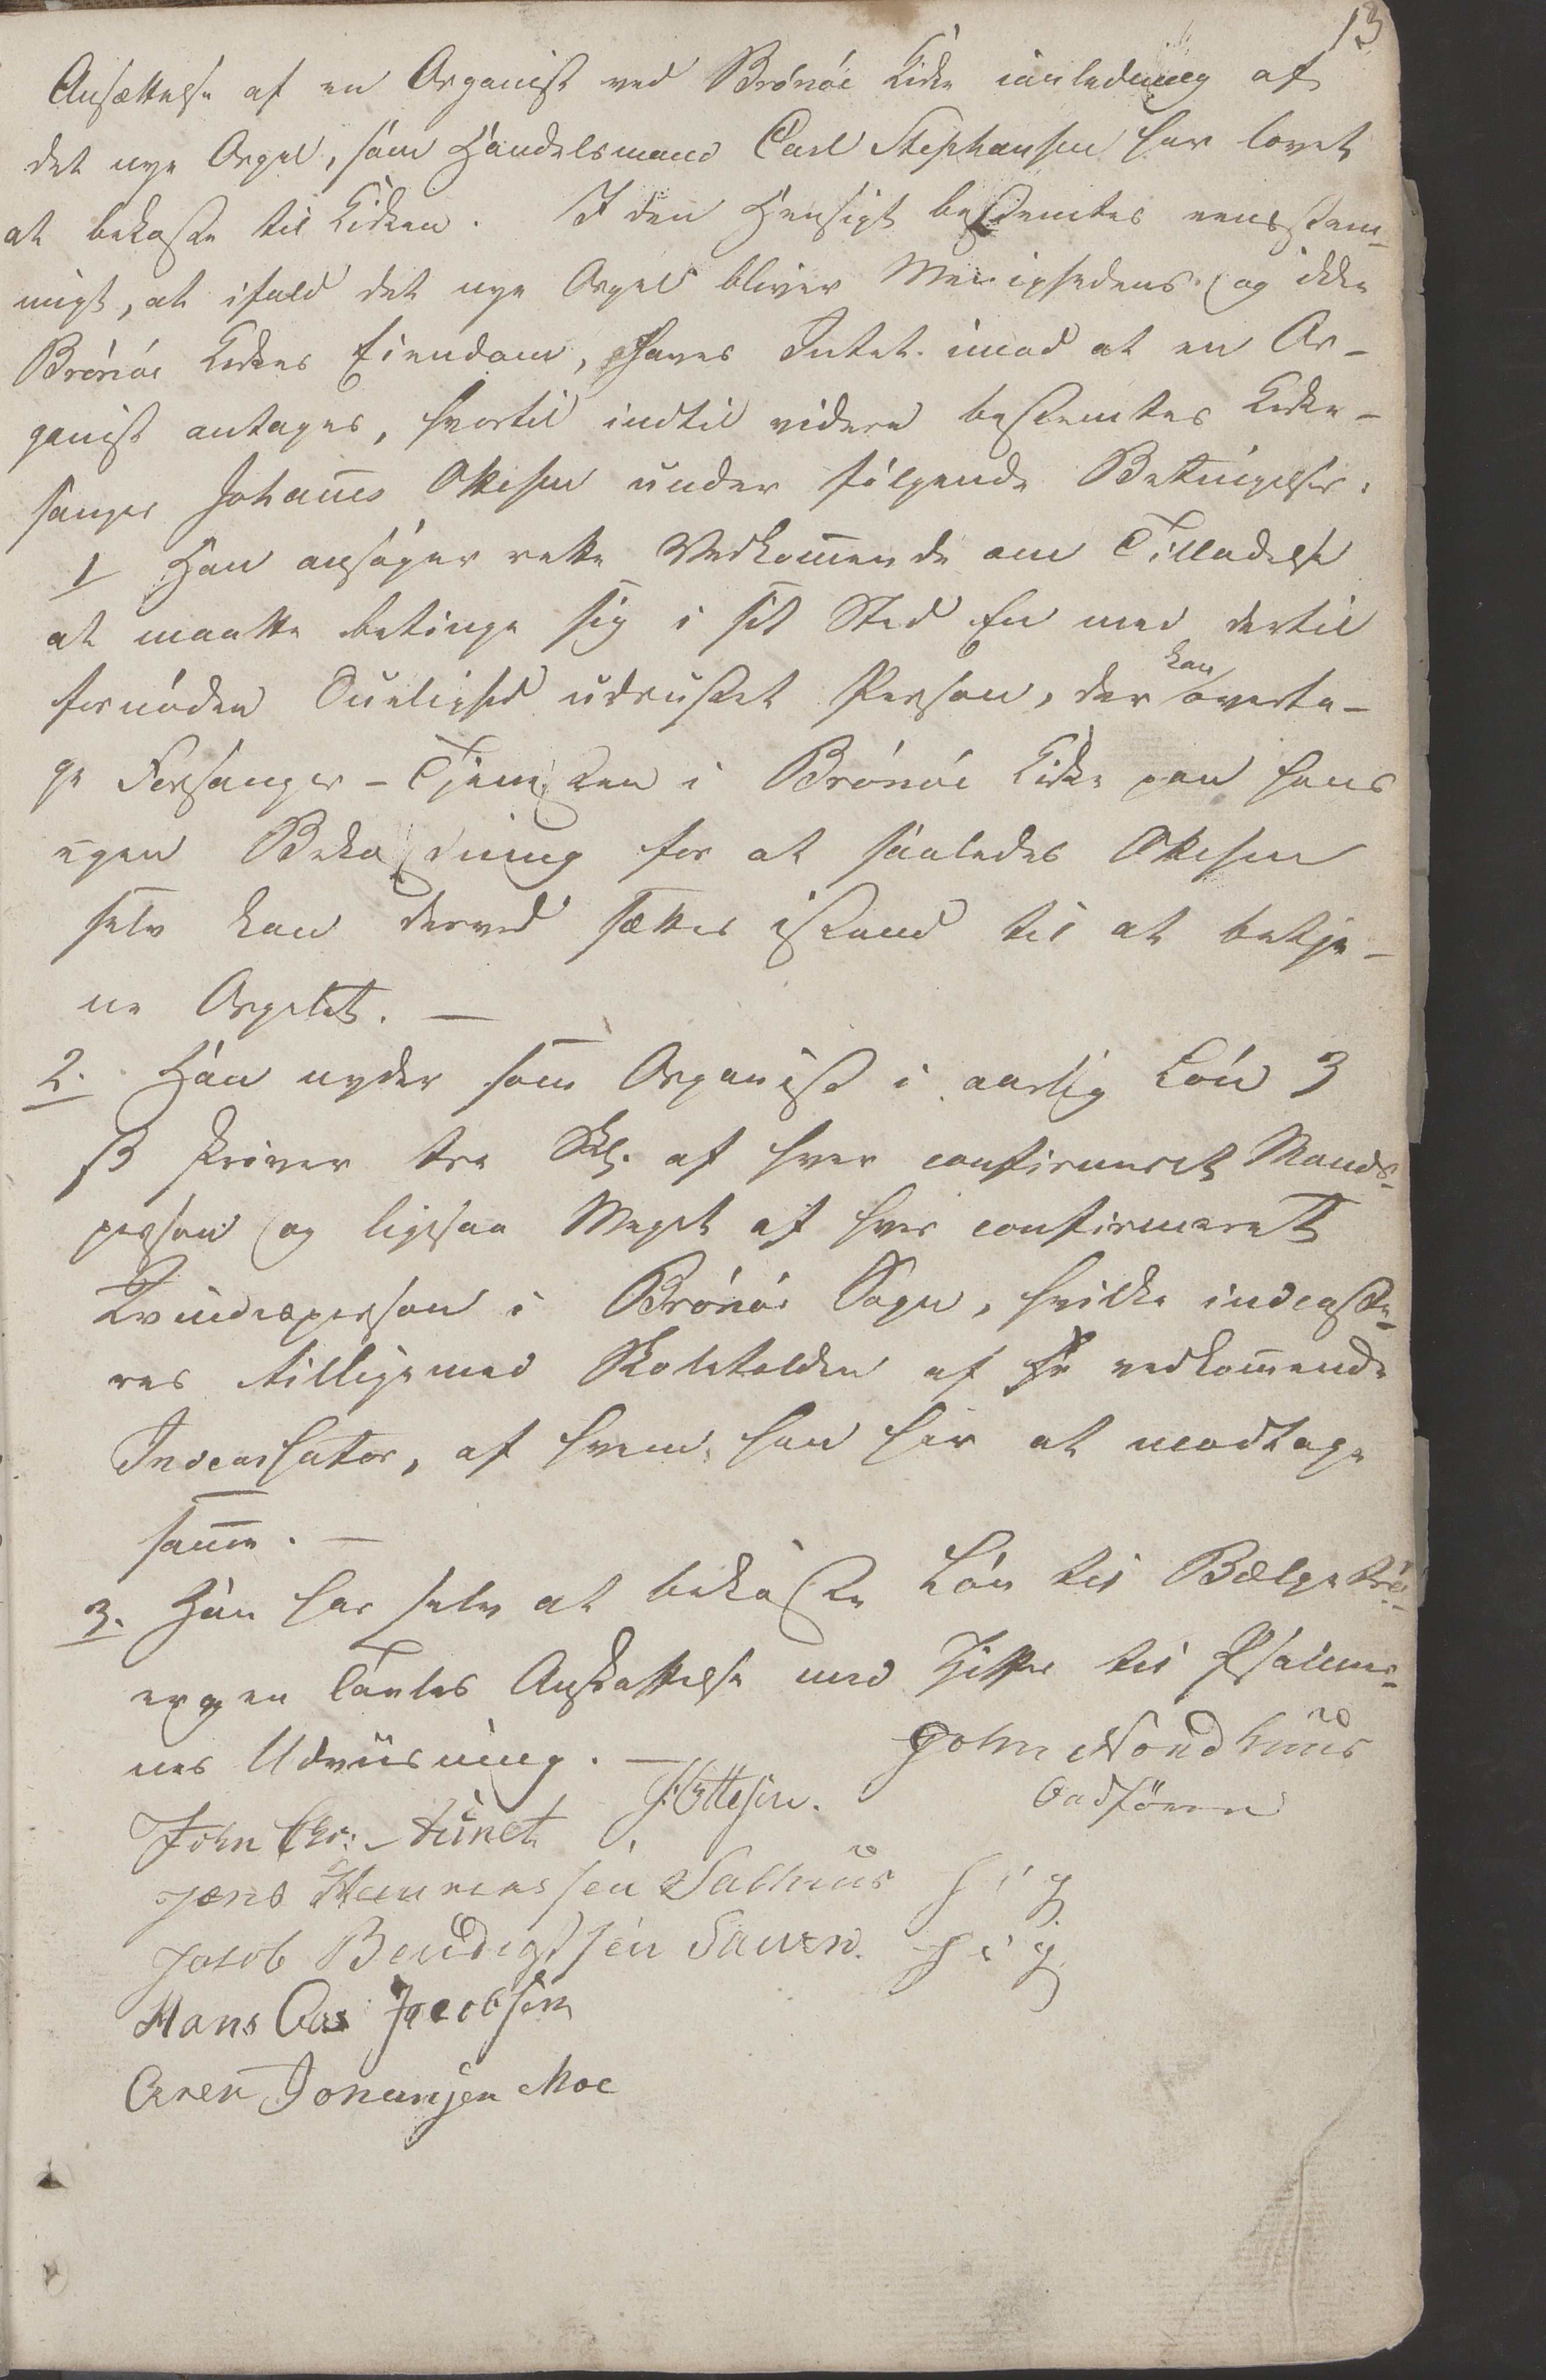 13
Ansættelse af en Organist ved Brönöe Kirke ianledning af
det nye Orgel, som Handelsmand Carl Stephansen har lovet
at bekoste til Kirken. I den Hensigt bestemtes eensstem-
migt, at ifald det nye Orgel bliver Menighedens og ikke
Brönöe Kirkes Eiendom, haves Intet imod at en Or-
ganist antages, hvortil indtil videre bestemtes Kirke-
sanger Johañes Ottesen under følgende Betingelser:
1 Han ansøger rette Vedkom̃ende om Tilladelse
at maatte betinge sig i sit Sted En med dertil
fornøden Duelighed udrustet Person, der kan overta-
ge Forsanger-Tjenesten i Brönöe Kirke paa hans
egen Bekostning for at saaledes Ottesen
selv kan derved sættes istand til at betje-
ne Orgelet. —
2. Han nyder som Organist i aarlig Løn 3
ß skriver tre Skl. af hver confirmeret Mands-
person og ligesaa Meget af hver confirmeret
Qvindesperson i Brönöe Sogn, hvilke indcasse-
res tilligemed Skoletolden af vedkom̃ende
Indcassator, af hvem han har at modtage
sam̃e. —
3. Han har selv at bekoste Løn til Bælgetræd-
eren Tavles Anskaffelse med Ziffre til Psalmer-
nes Udviisning. — John Nordhuus
John Chr: Aunet JOttesen. Ordförer
Jens Henriksen Salhuus
Jacob Bendigtsen Sauren.
Hans Aas Jacobsen
Aren Johansen Moe